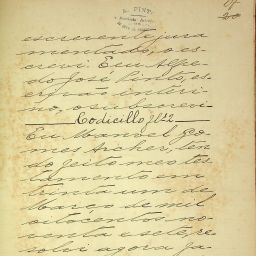 A. PINTO
escrevente jura
mentado, o es
crevi. E eu Alfre
do José Pinto, es
crivão interi
no, o subscrevi
Codicillo fl 12
Eu Manoel Go
mes Archer, ten
do feito meo tes
tamento em
trinta um de
Março de mil
oitocentos no
venta e sete, re
solvi agora fa